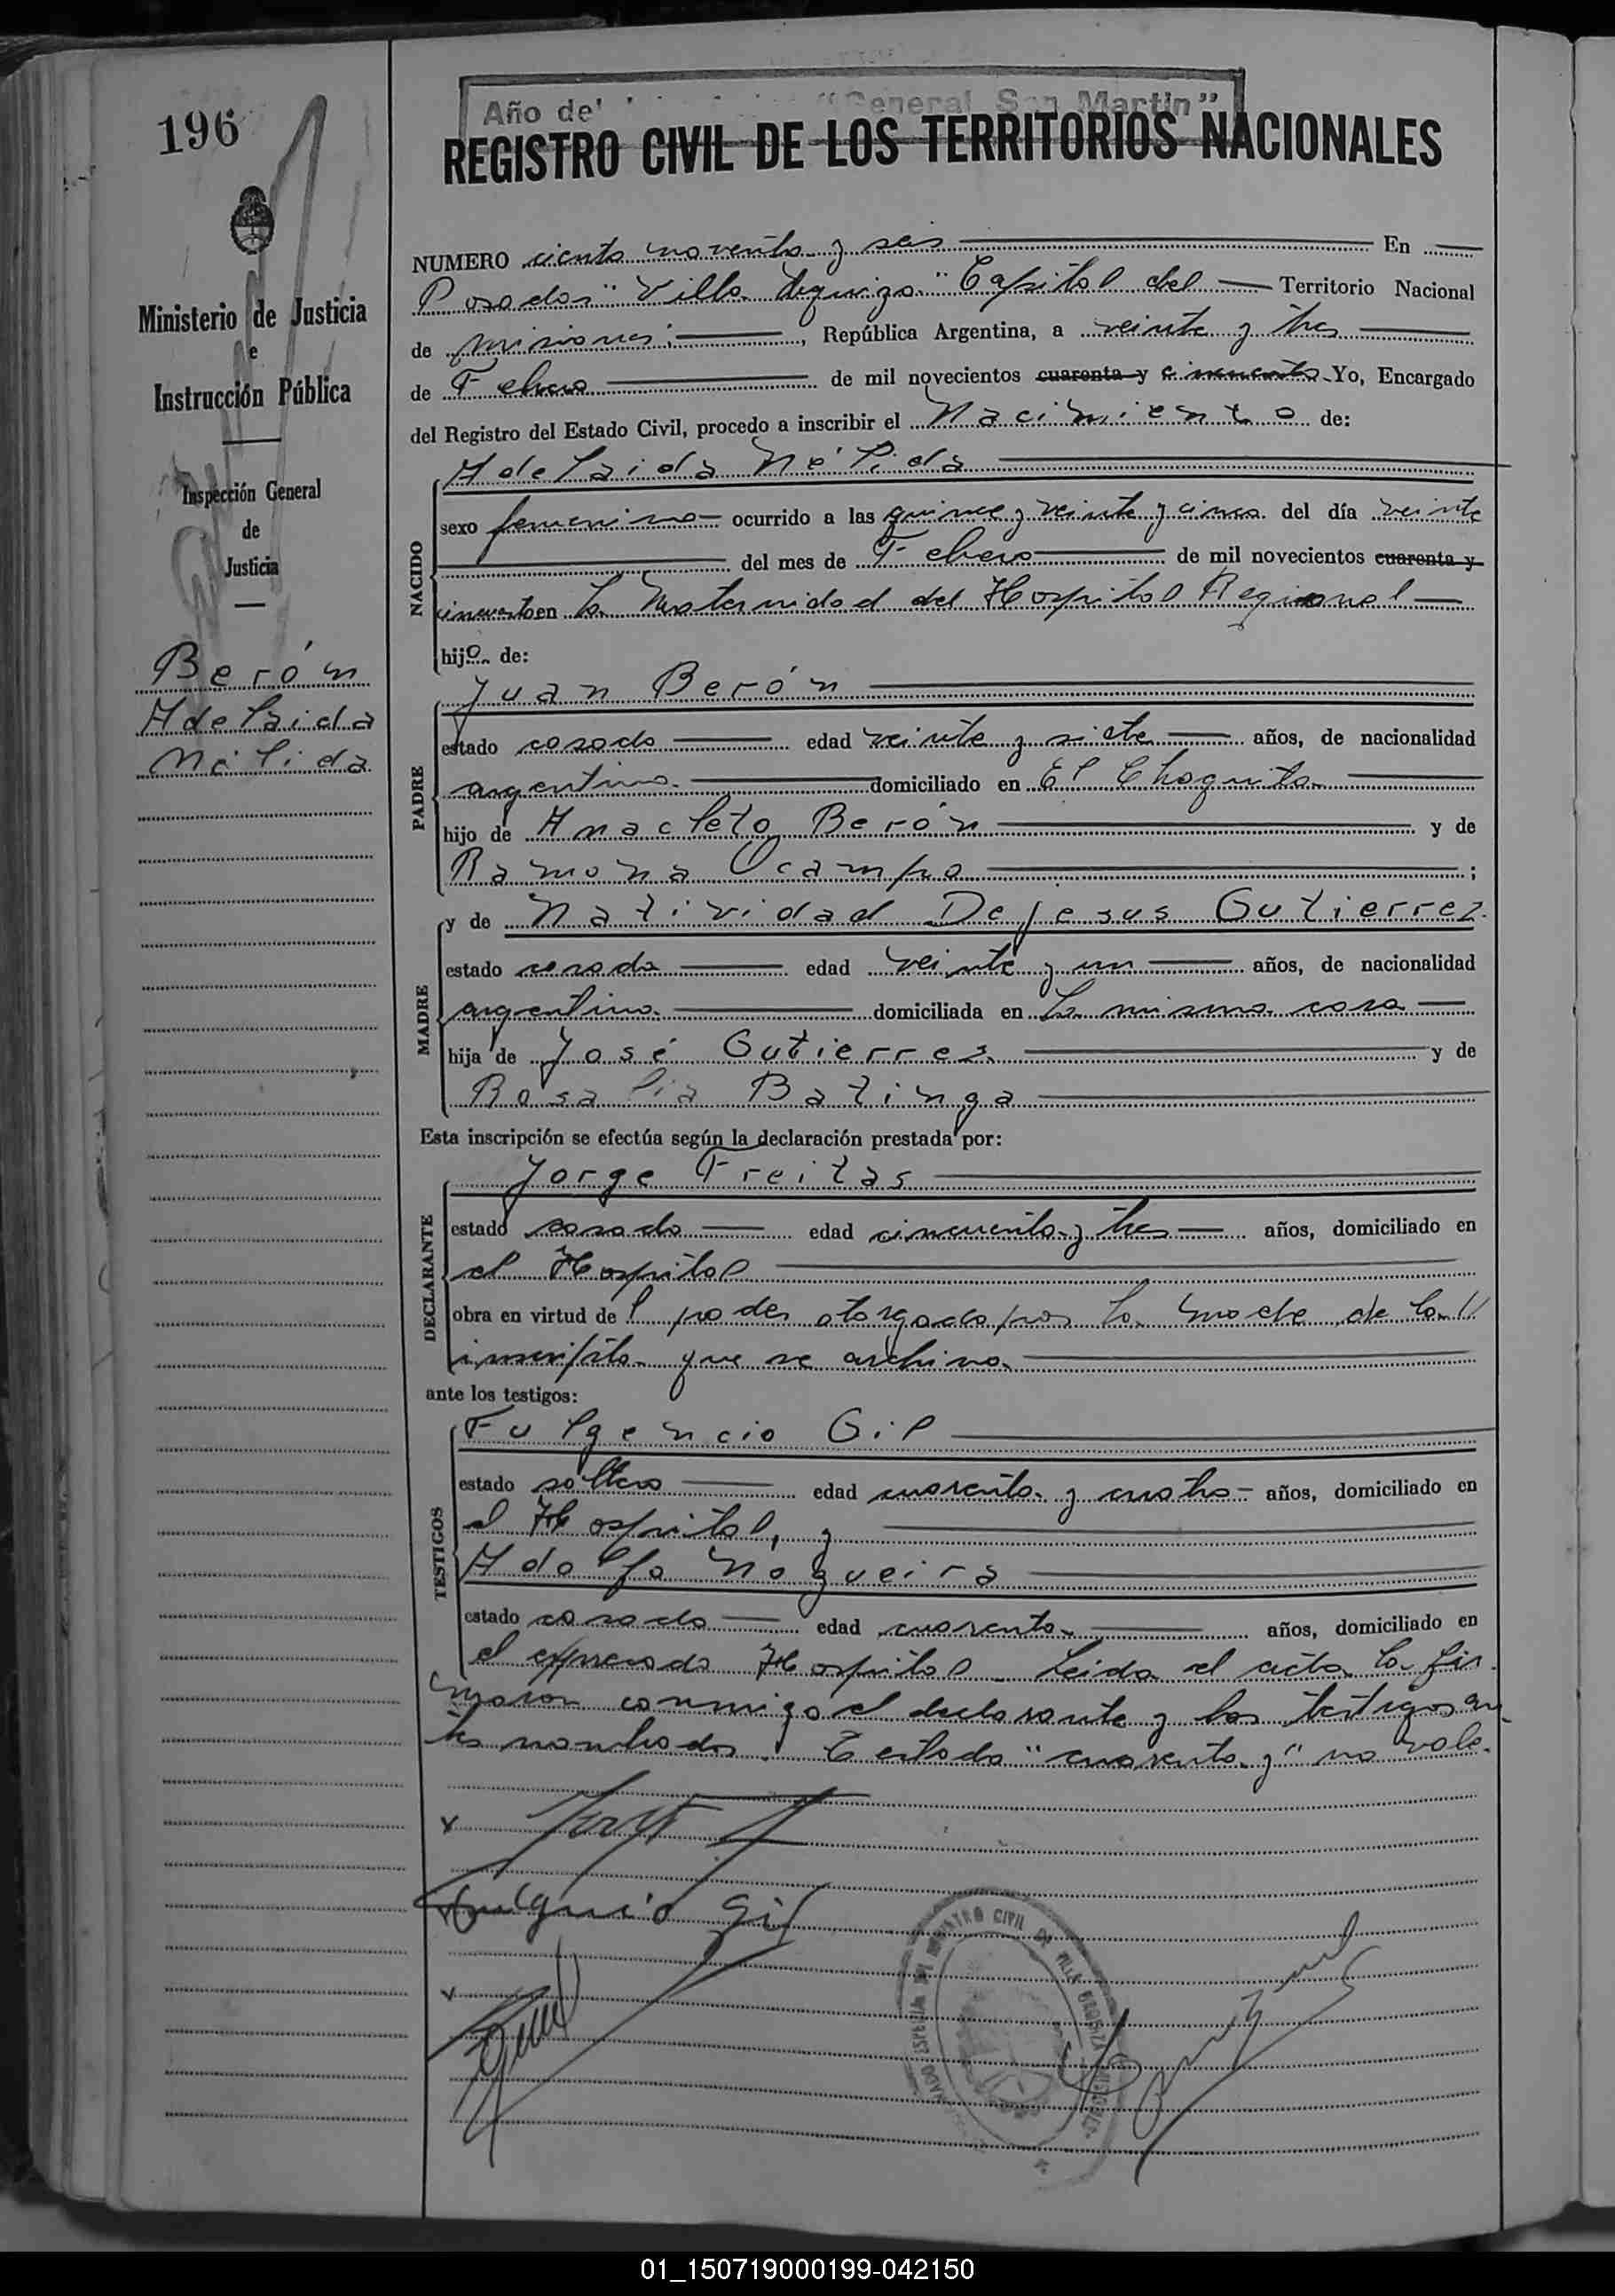 196
Año del "General San Martin"
REGISTRO CIVIL DE LOS TERRITORIOS NACIONALES
Ministerio de Justicia
e
Instrucción Pública
Inspección General
de
Justicia
Berón
Adelaida
Nélida
NUMERO ciento noventa y seis En
Posadas "Villa Urquiza" Capital del Territorio Nacional
de Misiones; , República Argentina, a veinte y tres
de Febrero de mil novecientos cuarenta y cincuenta Yo, Encargado
del Registro del Estado Civil, procedo a inscribir el Nacimiento de:
NACIDO
Adelaida Nélida
sexo femenino ocurrido a las quince y veinte y cinco del día veinte
del mes de Febrero de mil novecientos cuarenta y
cincuenta en la Maternidad del Hospital Regional
hija de:
PADRE
Juan Berón
estado casado edad veinte y siete años, de nacionalidad
argentina domiciliado en El Chaquito
hijo de Anacleto Berón y de
Ramona Ocampo ;
MADRE
y de Natividad Dejesus Gutierrez
estado casada edad veinte y un años, de nacionalidad
argentina domiciliada en la misma casa
hija de José Gutierres y de
Rosalia Batinga
Esta inscripción se efectúa según la declaración prestada por:
DECLARANTE
Jorge Freitas
estado casado edad cincuenta y tres años, domiciliado en
el Hospital
obra en virtud del poder otorgado por la madre de la
inscripta que se archiva.
ante los testigos:
TESTIGOS
Fulgencio Gil
estado soltero edad cuarenta y cuatro años, domiciliado en
el Hospital, y
Adolfo Nogueira
estado casado edad cuarenta años, domiciliado en
el expresado Hospital. Leida el acta la fir
maron conmigo el declarante y los testigos an
tes nombrados. Testado "cuarenta y" no vale.
Fulgencio Gil
REGISTRO CIVIL DE VILLA URQUIZA MISIONES
01_150719000199-042150